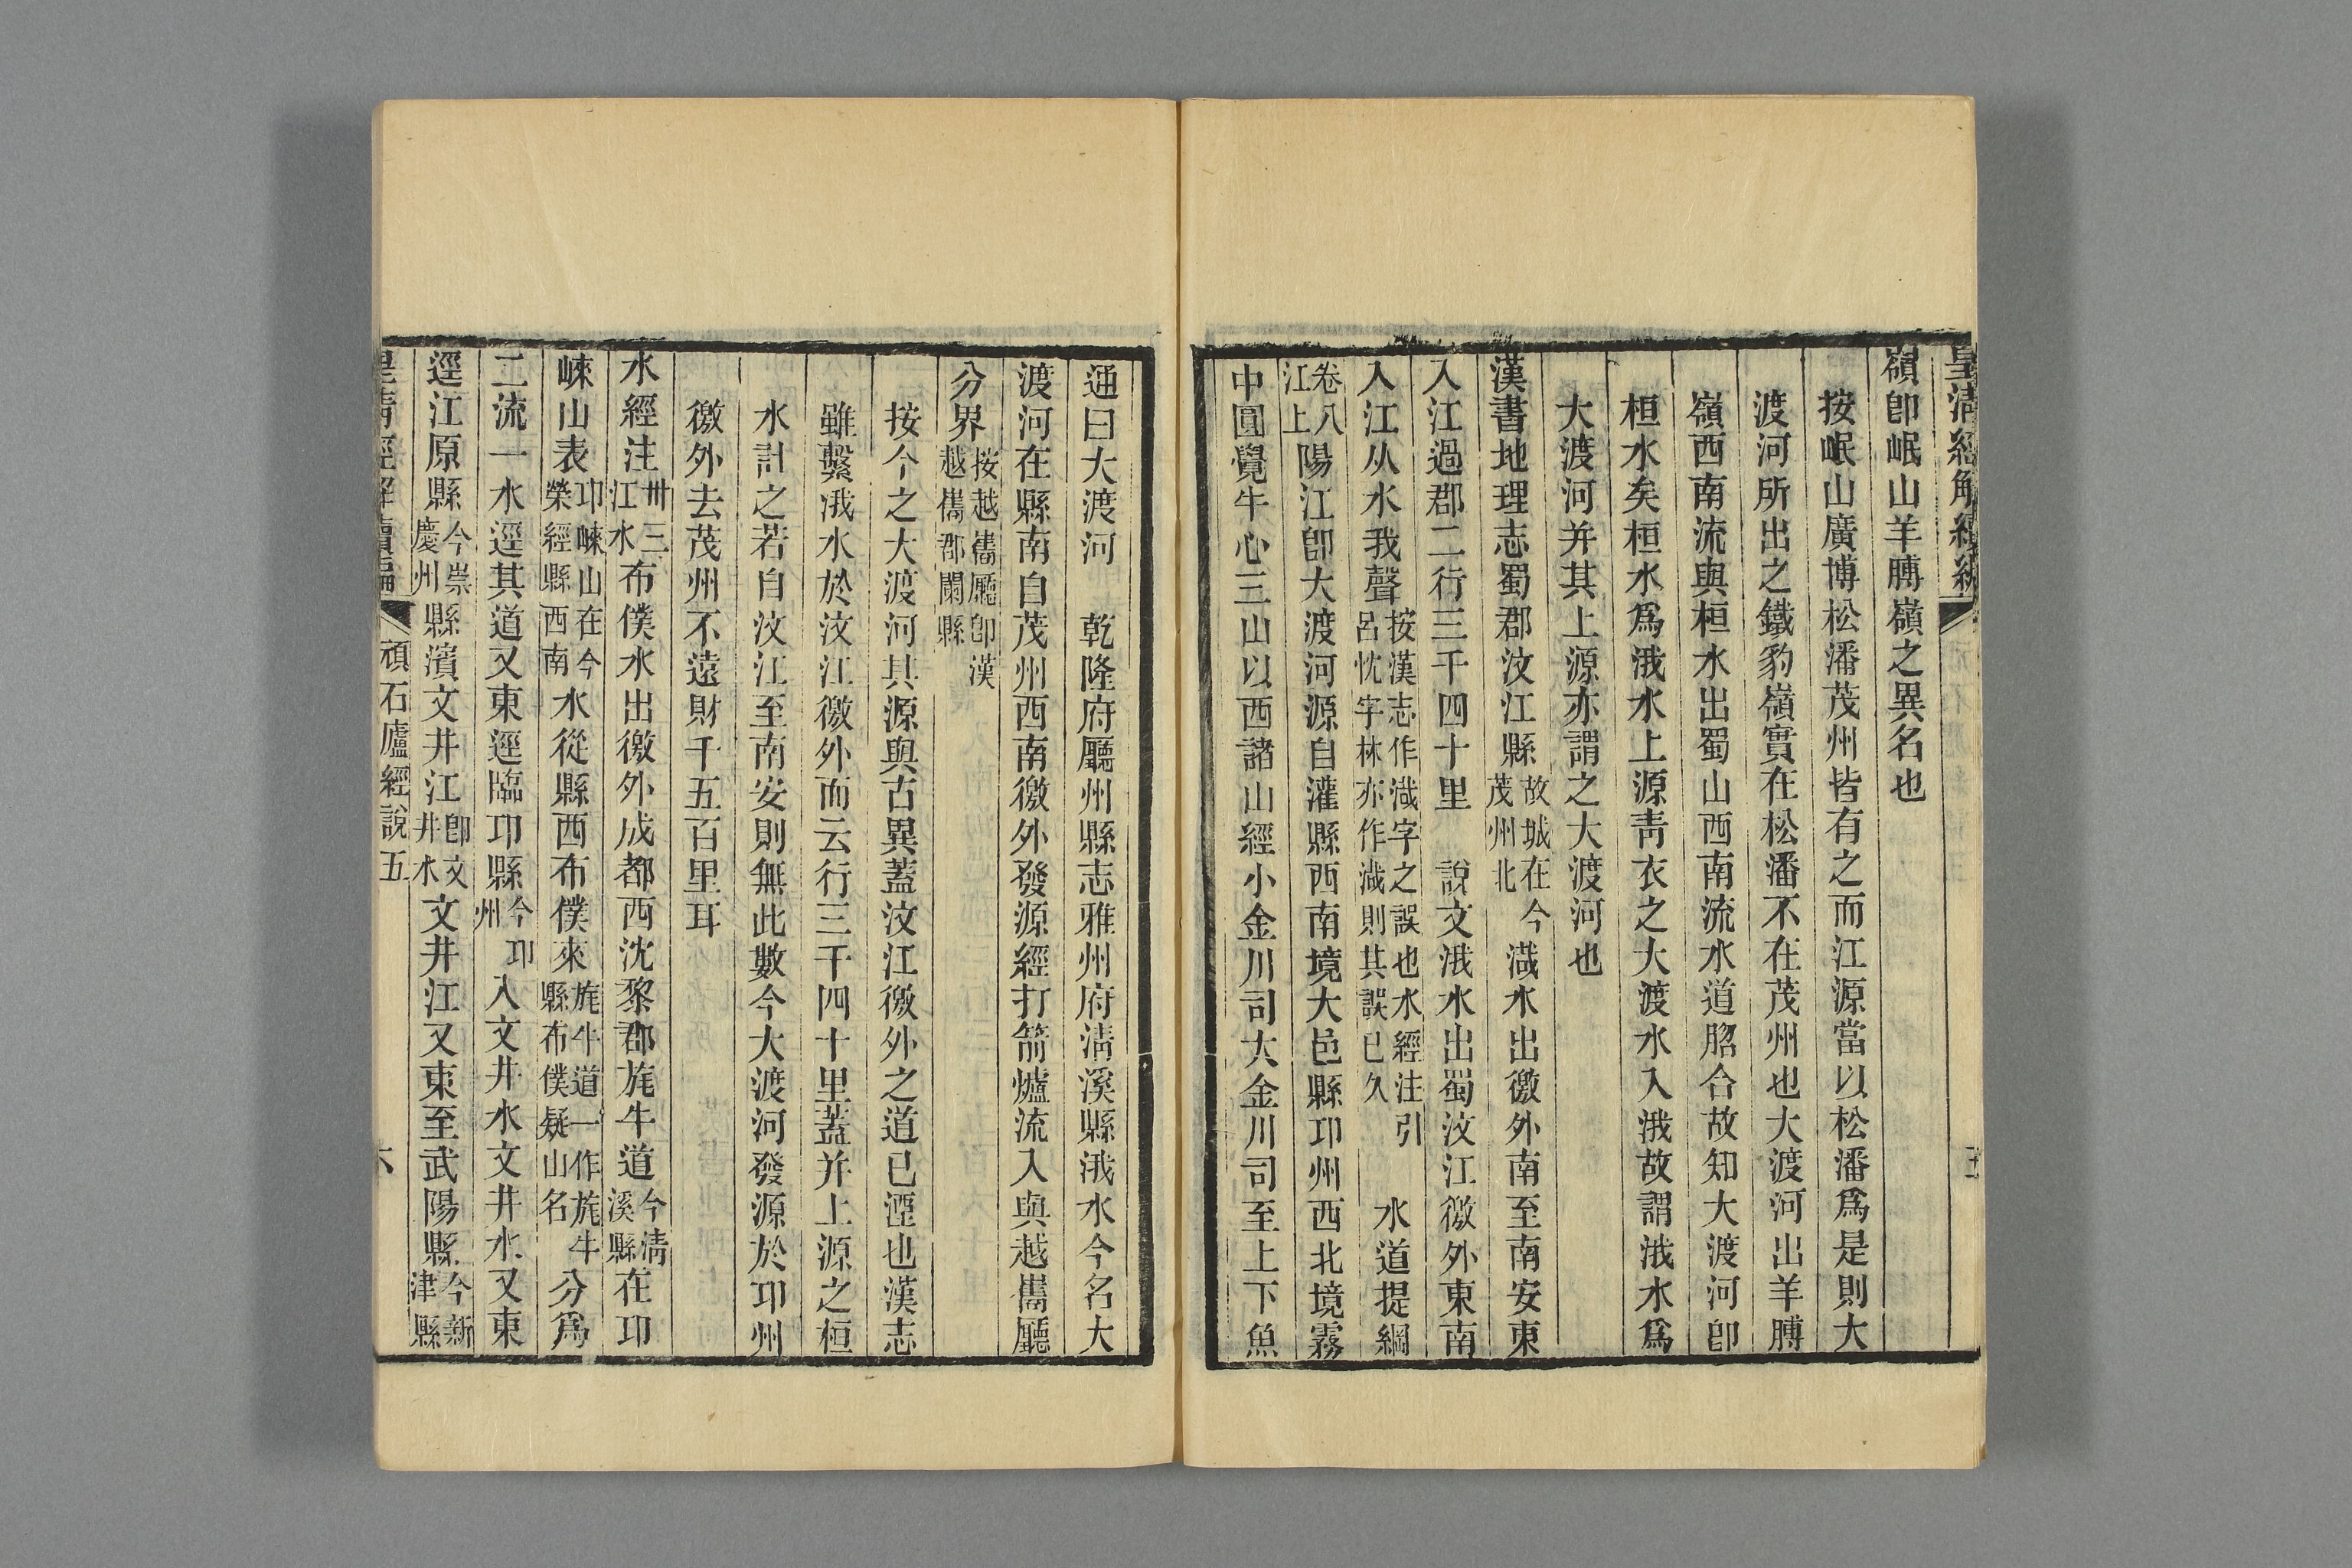 皇清經解續編
嶺卽岷山羊膊嶺之異名也
按岷山廣博松潘茂州皆有之而江源當以松潘爲是則大
渡河所出之鐵豹嶺實在松潘不在茂州也大渡河出羊膊
嶺西南流與桓水出蜀山西南流水道脗合故知大渡河卽
桓水矣桓水爲涐水上源靑衣之大渡水入涐故謂涐水爲
大渡河并其上源亦謂之大渡河也
漢書地理志蜀郡汶江縣故城在今茂州北渽水出徼外南至南安東
入江過郡二行三千四十里 說文涐水出蜀汶江徼外東南
入江从水我聲按漢志作渽字之誤也水經注引呂忱字林亦作渽則其誤已久 水道提綱
卷八江上陽江卽大渡河源自灌縣西南境大邑縣邛州西北境霧
中圓覺牛心三山以西諸山經小金川司大金川司至上下魚
通曰大渡河 乾隆府廳州縣志雅州府淸溪縣涐水今名大
渡河在縣南自茂州西南徼外發源經打箭爐流入與越巂廳
分界按越巂廳卽漢越巂郡闌縣
按今之大渡河其源與古異蓋汶江徼外之道已湮也漢志
雖繫涐水於汶江徼外而云行三千四十里蓋并上源之桓
水計之若自汶江至南安則無此數今大渡河發源於邛州
徼外去茂州不遠財千五百里耳
水經注卅三江水布僕水出徼外成都西沈黎郡旄牛道今淸溪縣在邛
崍山表邛崍山在今榮經縣西南水從縣西布僕來旄牛道一作旄牛縣布僕疑山名分爲
二流一水逕其道又東逕臨邛縣今邛州入文井水文井水又東
逕江原縣今崇慶州縣濱文井江卽文井水文井江又東至武陽縣今新津縣
皇淸經解續編
頑石廬經說五
六